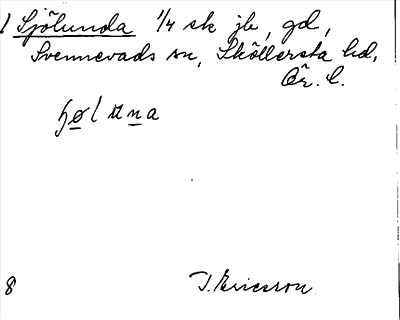 Sjölunda 1/4 sk jb, gd,
Svennevads sn, Sköllersta hd,
Ör. l.
8
J. Ericsson